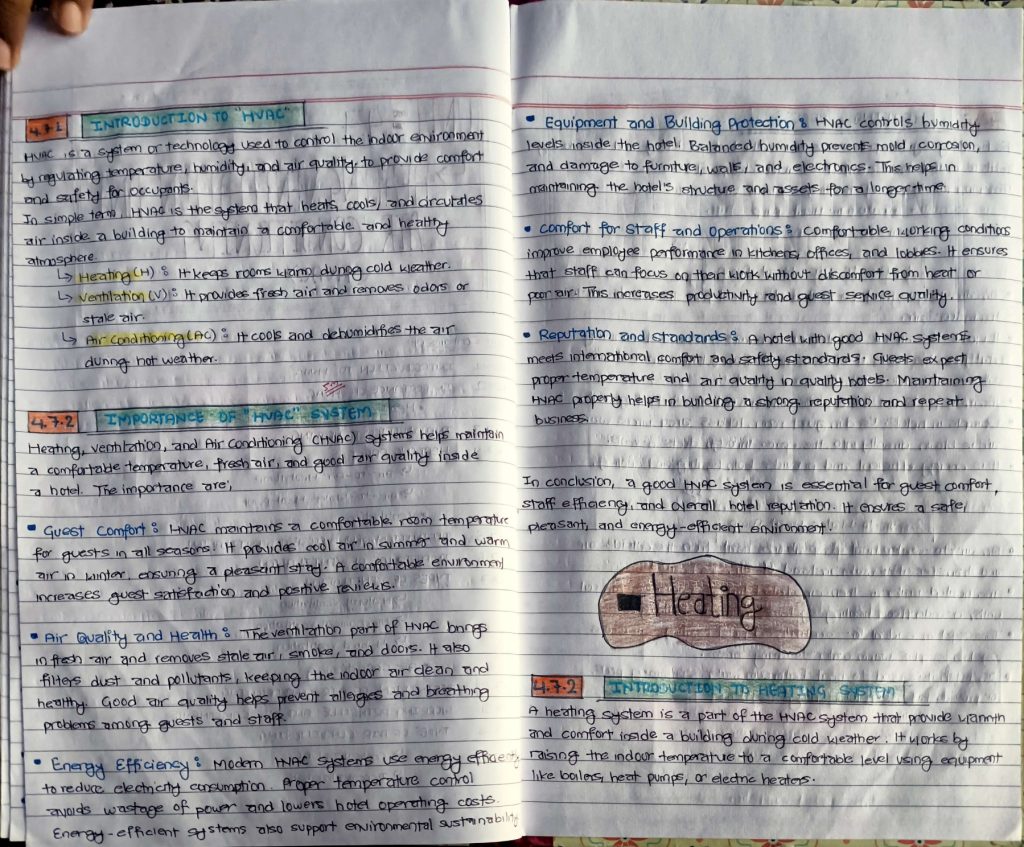 4.7.1 INTRODUCTION TO "HVAC"
HVAC is a system or technology used to control the indoor environment
by regulating temperature, humidity, and air quality to provide comfort
and safety for occupants.
In simple term, HVAC is the system that heats, cools, and circulates
air inside a building to maintain a comfortable and healthy
atmosphere.
↳ Heating (H) : It keeps rooms warm during cold weather.
↳ Ventilation (V) : It provides fresh air and removes odors or
stale air.
↳ Air Conditioning (AC) : It cools and dehumidifies the air
during hot weather.
4.7.2 IMPORTANCE OF "HVAC" SYSTEM
Heating, ventilation, and Air Conditioning (HVAC) systems helps maintain
a comfortable temperature, fresh air, and good air quality inside
a hotel. The importance are;
• Guest Comfort : HVAC maintains a comfortable room temperature
for guests in all seasons. It provides cool air in summer and warm
air in winter, ensuring a pleasant stay. A comfortable environment
increases guest satisfaction and positive reviews.
• Air Quality and Health : The ventilation part of HVAC brings
in fresh air and removes stale air, smoke, and doors. It also
filters dust and pollutants, keeping the indoor air clean and
healthy. Good air quality helps prevent allergies and breathing
problems among guests and staff.
• Energy Efficiency : Modern HVAC systems use energy efficiently
to reduce electricity consumption. Proper temperature control
avoids wastage of power and lowers hotel operating costs.
Energy-efficient systems also support environmental sustainability
• Equipment and Building Protection : HVAC controls humidity
levels inside the hotel. Balanced humidity prevents mold, corrosion,
and damage to furniture, walls, and electronics. This helps in
maintaining the hotel's structure and assets for a longer time
• Comfort for Staff and Operations : Comfortable working conditions
improve employee performance in kitchens, offices, and lobbies. It ensures
that staff can focus on their work without discomfort from heat or
poor air. This increases productivity and guest service quality.
• Reputation and standards : A hotel with good HVAC systems
meets international comfort and safety standards. Guests expect
proper temperature and air quality in quality hotels. Maintaining
HVAC properly helps in building a strong reputation and repeat
business.
In conclusion, a good HVAC system is essential for guest comfort,
staff efficiency, and overall hotel reputation. It ensures a safe,
pleasant, and energy-efficient environment.
Heating
4.7.2 INTRODUCTION TO HEATING SYSTEM
A heating system is a part of the HVAC system that provide warmth
and comfort inside a building during cold weather. It works by
raising the indoor temperature to a comfortable level using equipment
like boilers, heat pumps, or electric heaters.